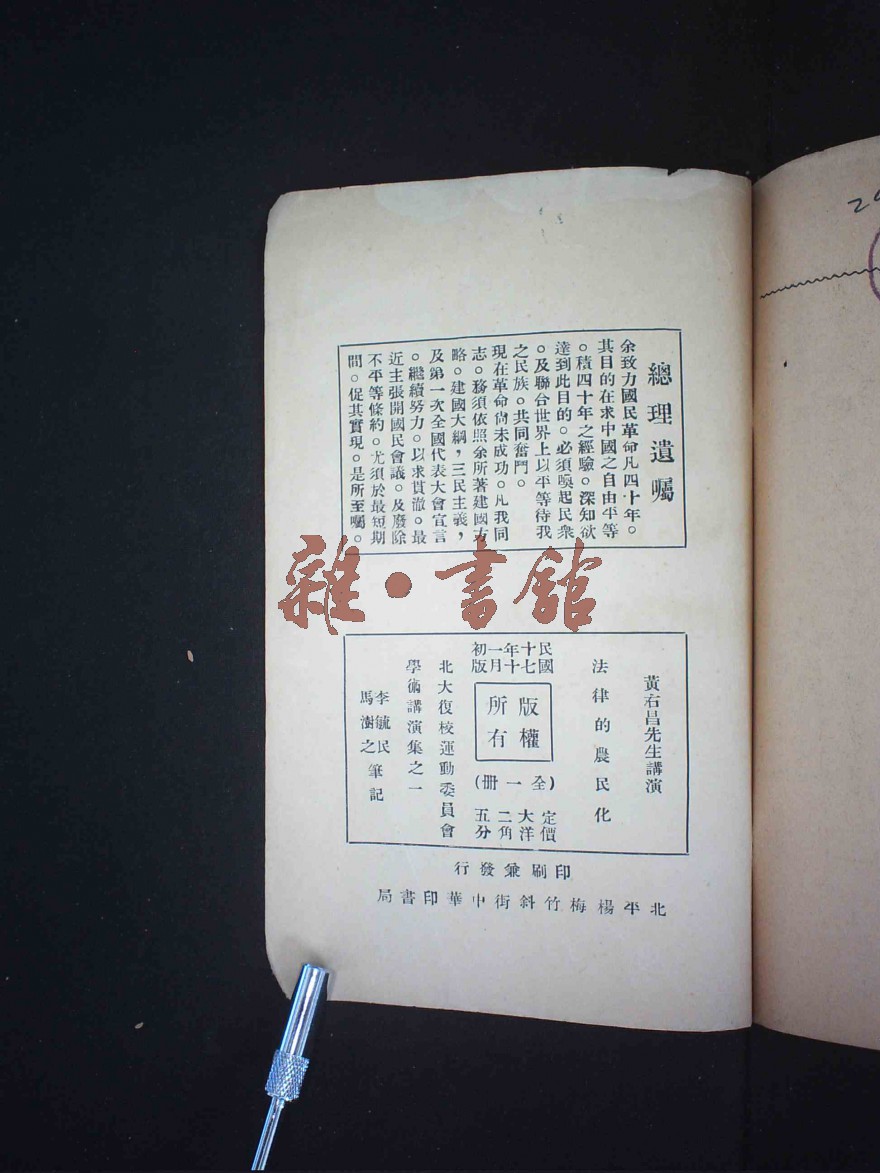 總理遺囑
余致力國民革命凡四十年。
其目的在求中國之自由平等
。積四十年之經驗。深知欲
達到此目的。必須喚起民衆
。及聯合世界上以平等待我
之民族。共同奮鬥。
現在革命尙未成功。凡我同
志。務須依照余所著建國方
略。建國大綱，三民主義，
及第一次全國代表大會宣言
。繼續努力。以求貫澈。最
近主張開國民會議。及廢除
不平等條約。尤須於最短期
間。促其實現。是所至囑。
雜·書館
黃右昌先生講演
法律的農民化
民國十七年十一月初版
版權所有
(全一册)
定價大洋二角五分
北大復校運動委員會
學術講演集之一
李毓民
馬澍之
筆記
印刷兼發行
北平楊梅竹斜街中華印書局